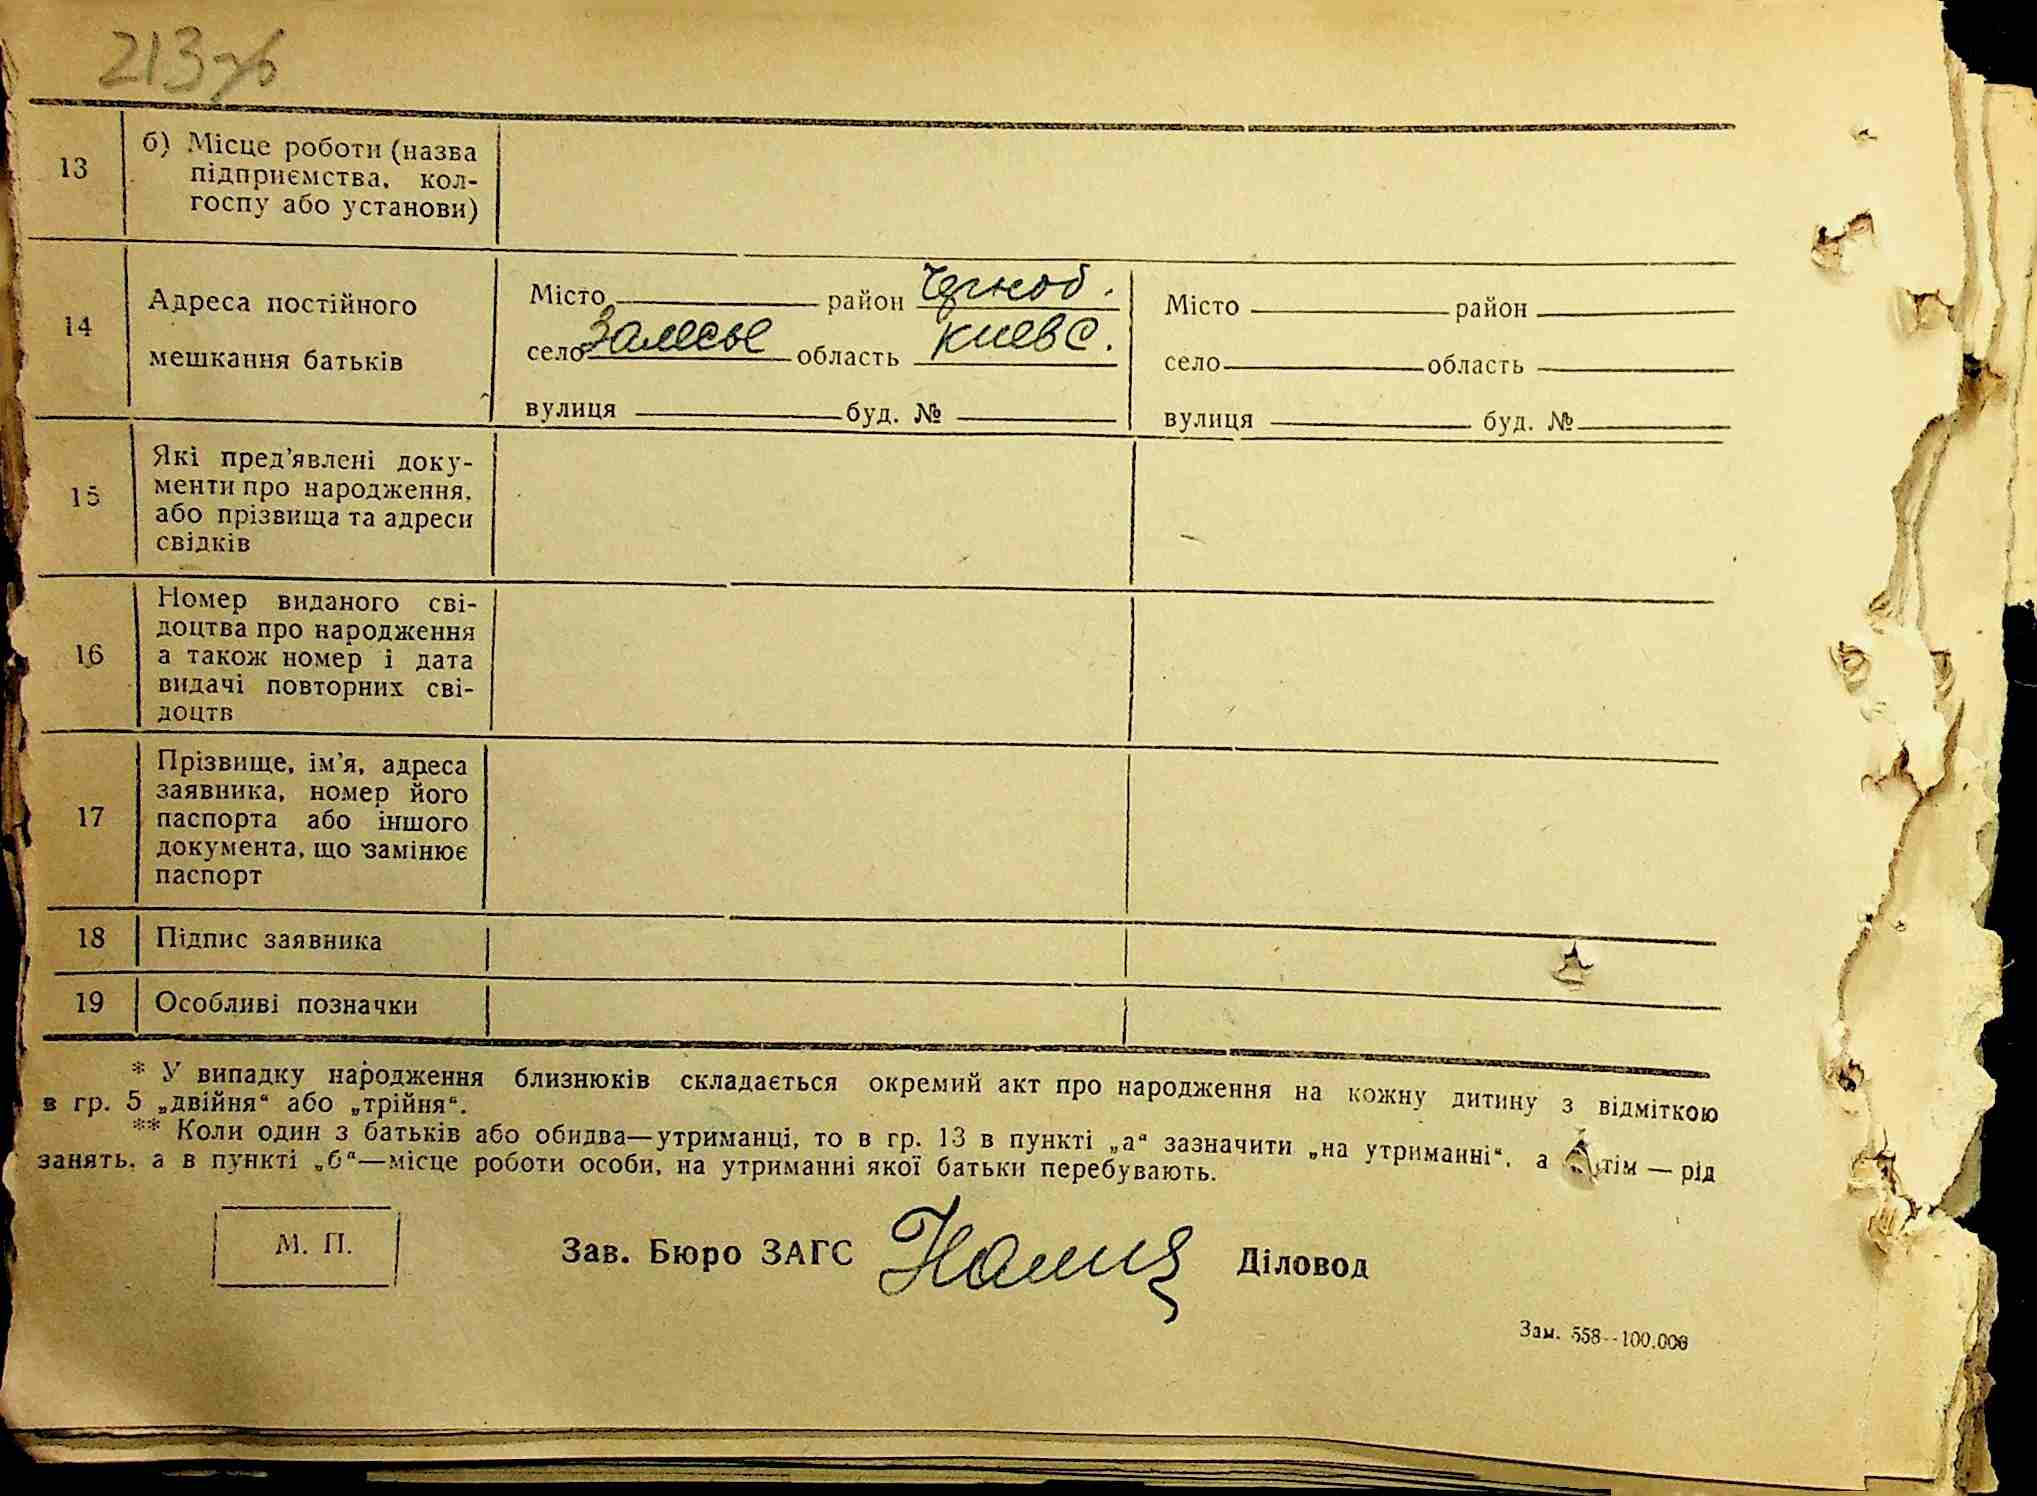 213зв
13
б) Місце роботи (назва
підприємства, кол-
госпу або установи)
14
Адреса постійного
мешкання батьків
Місто район Черноб.
село Залесье область Киевс.
вулиця буд. №
Місто район
село область
вулиця буд. №
15
Які пред’явлені доку-
менти про народження,
або прізвища та адреси
свідків
16
Номер виданого сві-
доцтва про народження
а також номер і дата
видачі повторних сві-
доцтв
17
Прізвище, ім’я, адреса
заявника, номер його
паспорта або іншого
документа, що замінює
паспорт
18
Підпис заявника
19
Особливі позначки
* У випадку народження близнюків складається окремий акт про народження на кожну дитину з відміткою
в гр. 5 „двійня“ або „трійня“.
** Коли один з батьків або обидва—утриманці, то в гр. 13 в пункті „а“ зазначити „на утриманні“, а тім — рід
занять, а в пункті „б“—місце роботи особи, на утриманні якої батьки перебувають.
М. П.
Зав. Бюро ЗАГС Діловод
Зам. 558--100.000